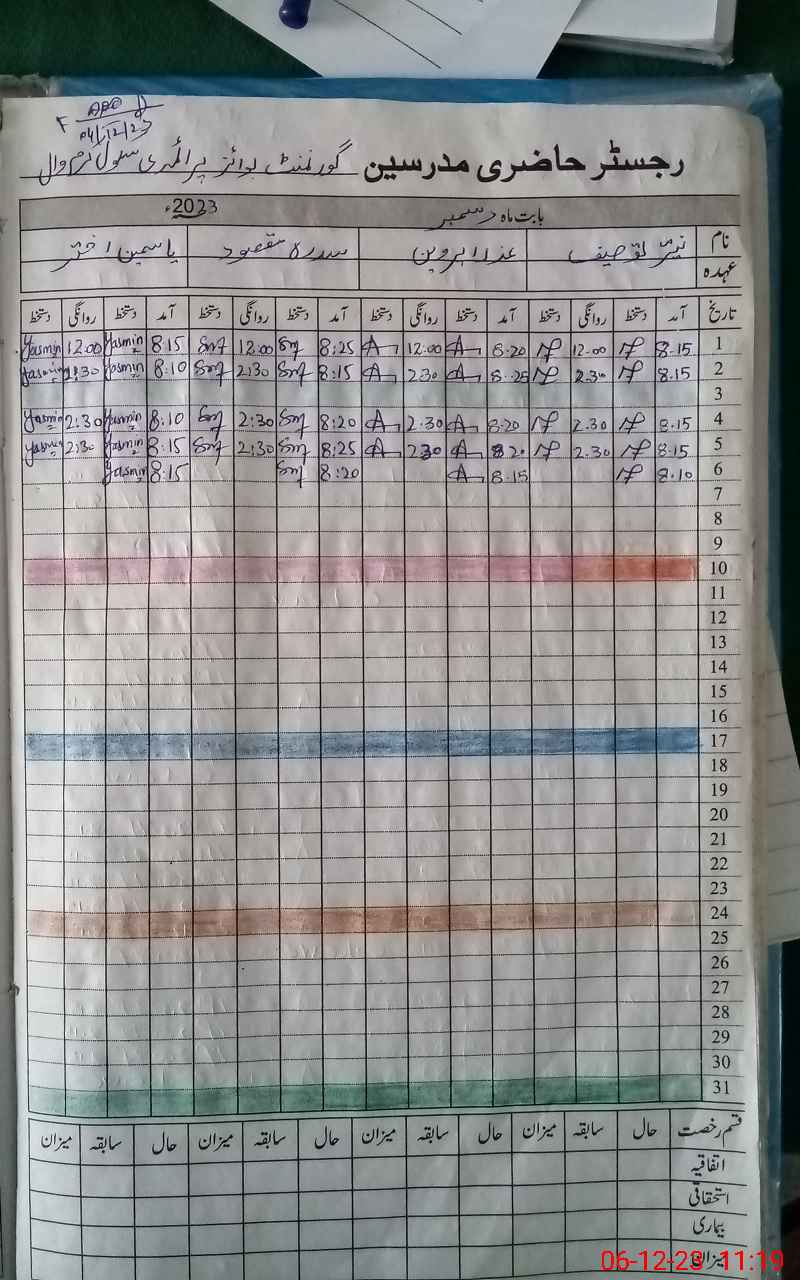 04/12/23
رجسٹر حاضری مدرسین گورنمنٹ بوائز پرائمری سکول نرم وال
بابت ماہ دسمبر 2023ء
نام نیئر توصیف عذرا پروین سدرہ مقصود یاسمین اختر
عہدہ
تاریخ آمد دستخط روانگی دستخط آمد دستخط روانگی دستخط آمد دستخط روانگی دستخط آمد دستخط روانگی دستخط
1 8.15 12.00 8.20 12.00 8:25 12:00 8:15 Yasmin 12.00 Yasmin
2 8.15 2.30 8.25 2.30 8:15 2:30 8:10 Yasmin 2:30 Yasmin
3
4 8.15 2.30 8.20 2.30 8:20 2:30 8:10 Yasmin 2:30 Yasmin
5 8.15 2.30 8.20 2.30 8:25 2:30 8:15 Yasmin 2:30 Yasmin
6 8.10 8.15 8:20 8:15 Yasmin
7
8
9
10
11
12
13
14
15
16
17
18
19
20
21
22
23
24
25
26
27
28
29
30
31
قسم رخصت حال سابقہ میزان حال سابقہ میزان حال سابقہ میزان حال سابقہ میزان
اتفاقیہ
استحقاقی
بیماری
میزان
06-12-23 11:19